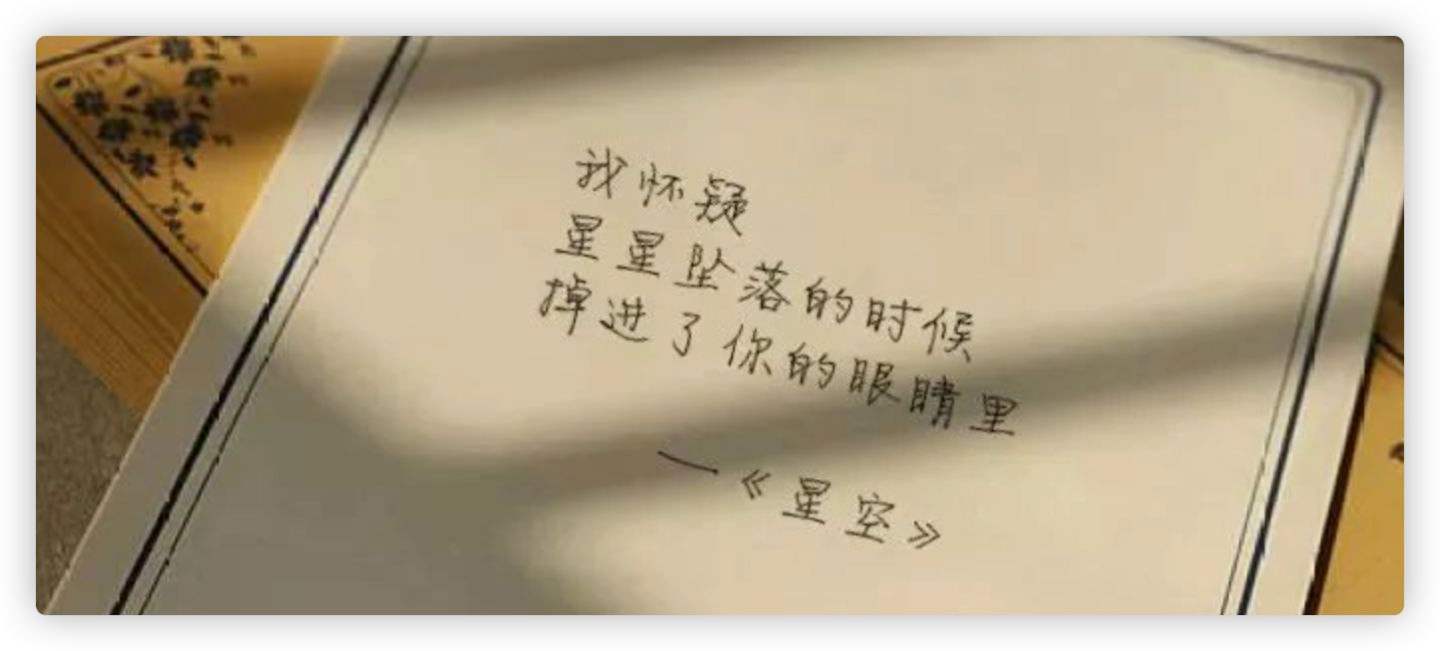 我怀疑
星星坠落的时候
掉进了你的眼睛里
—《星空》